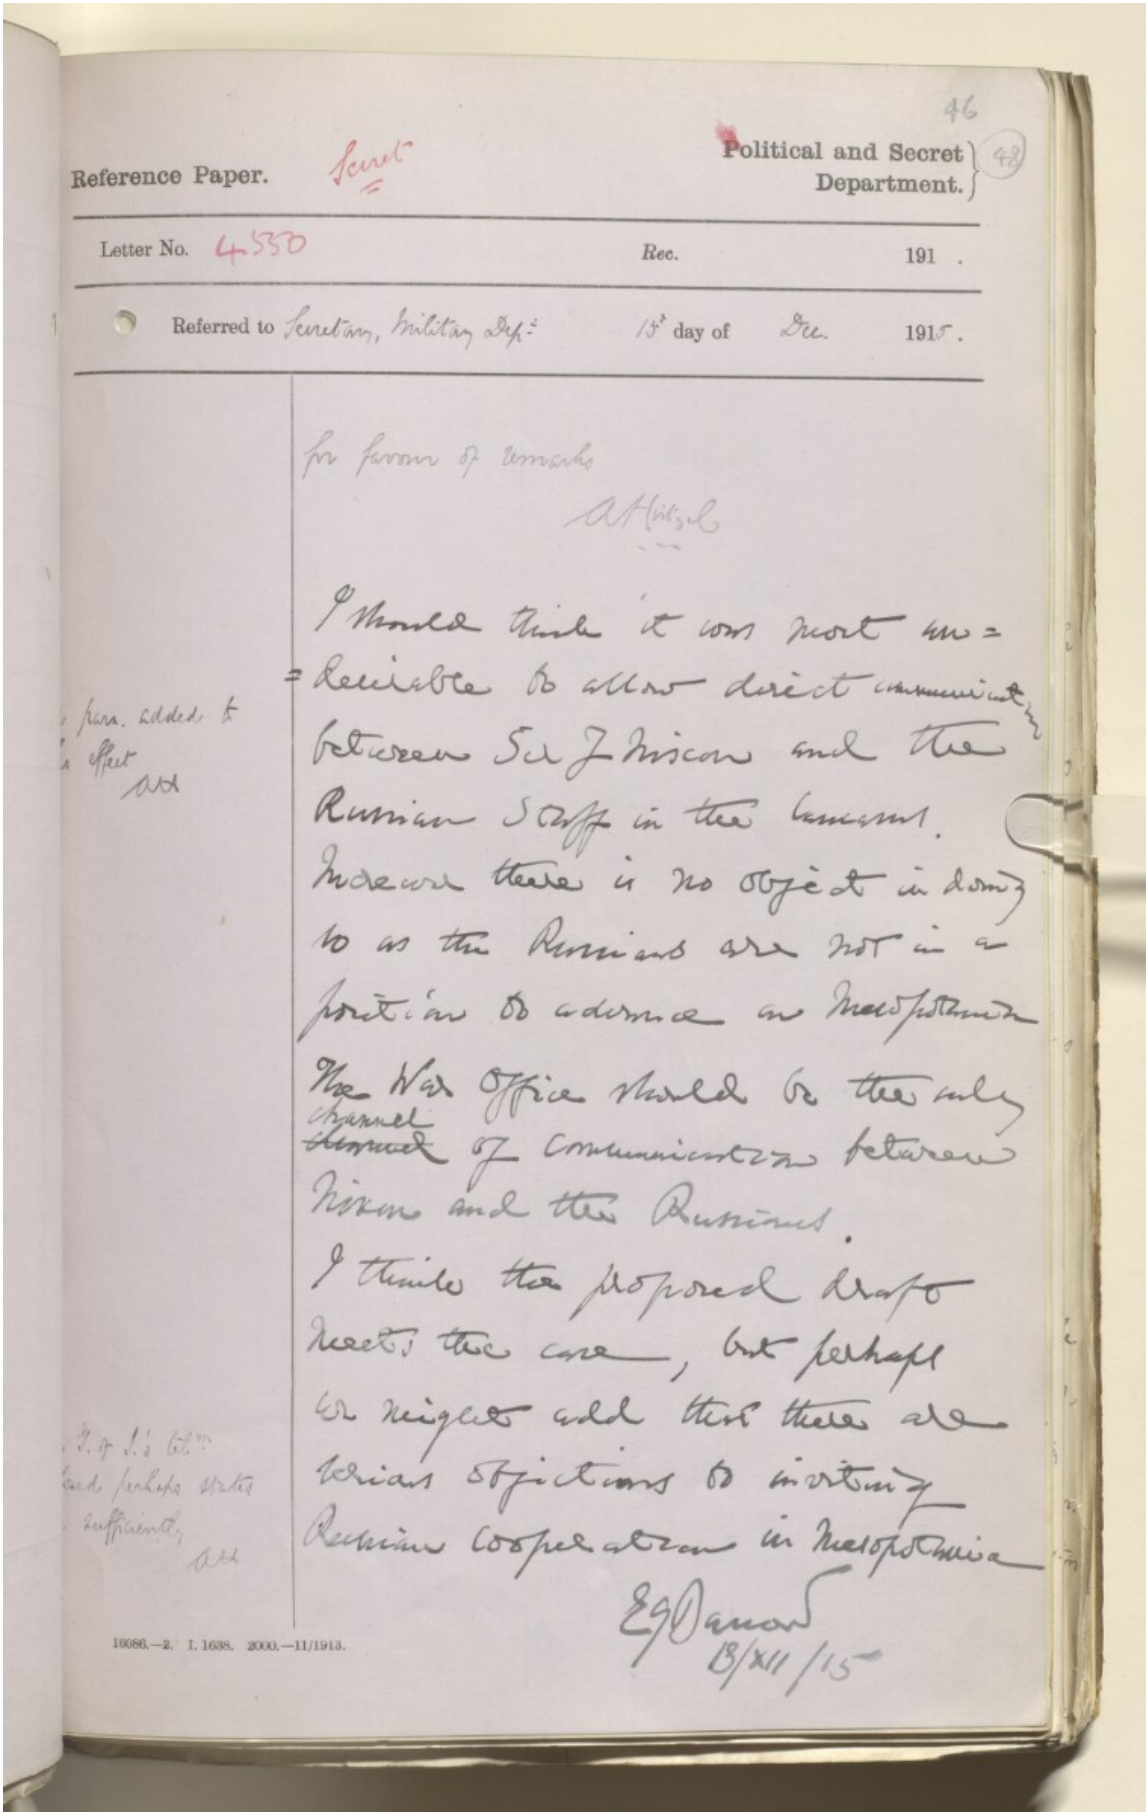 46
Secret
Political and Secret
Department.
48
Reference Paper.
Letter No. 4550
Rec. 191 .
Referred to Secretary, Military Dept. 13th day of Dec. 1915.
for favour of remarks
A Hirtzel
I should think it was most un=
=desirable to allow direct communication
between Sir J Nixon and the
Russian Staff in the Caucasus.
Moreover there is no object in doing
so as the Russians are not in a
position to advance on Mesopotamia
The War Office should be the only
channel
channel of communication between
Nixon and the Russians.
I think the proposed draft
meets the case, but perhaps
we might add that there are
serious objections to inviting
Russian cooperation in Mesopotamia
EGBarrow
13/XII/15
para. added to
effect
AH
G. of I.'s telm
perhaps states
sufficiently
AH
16086.—2. I. 1638. 2000.—11/1913.